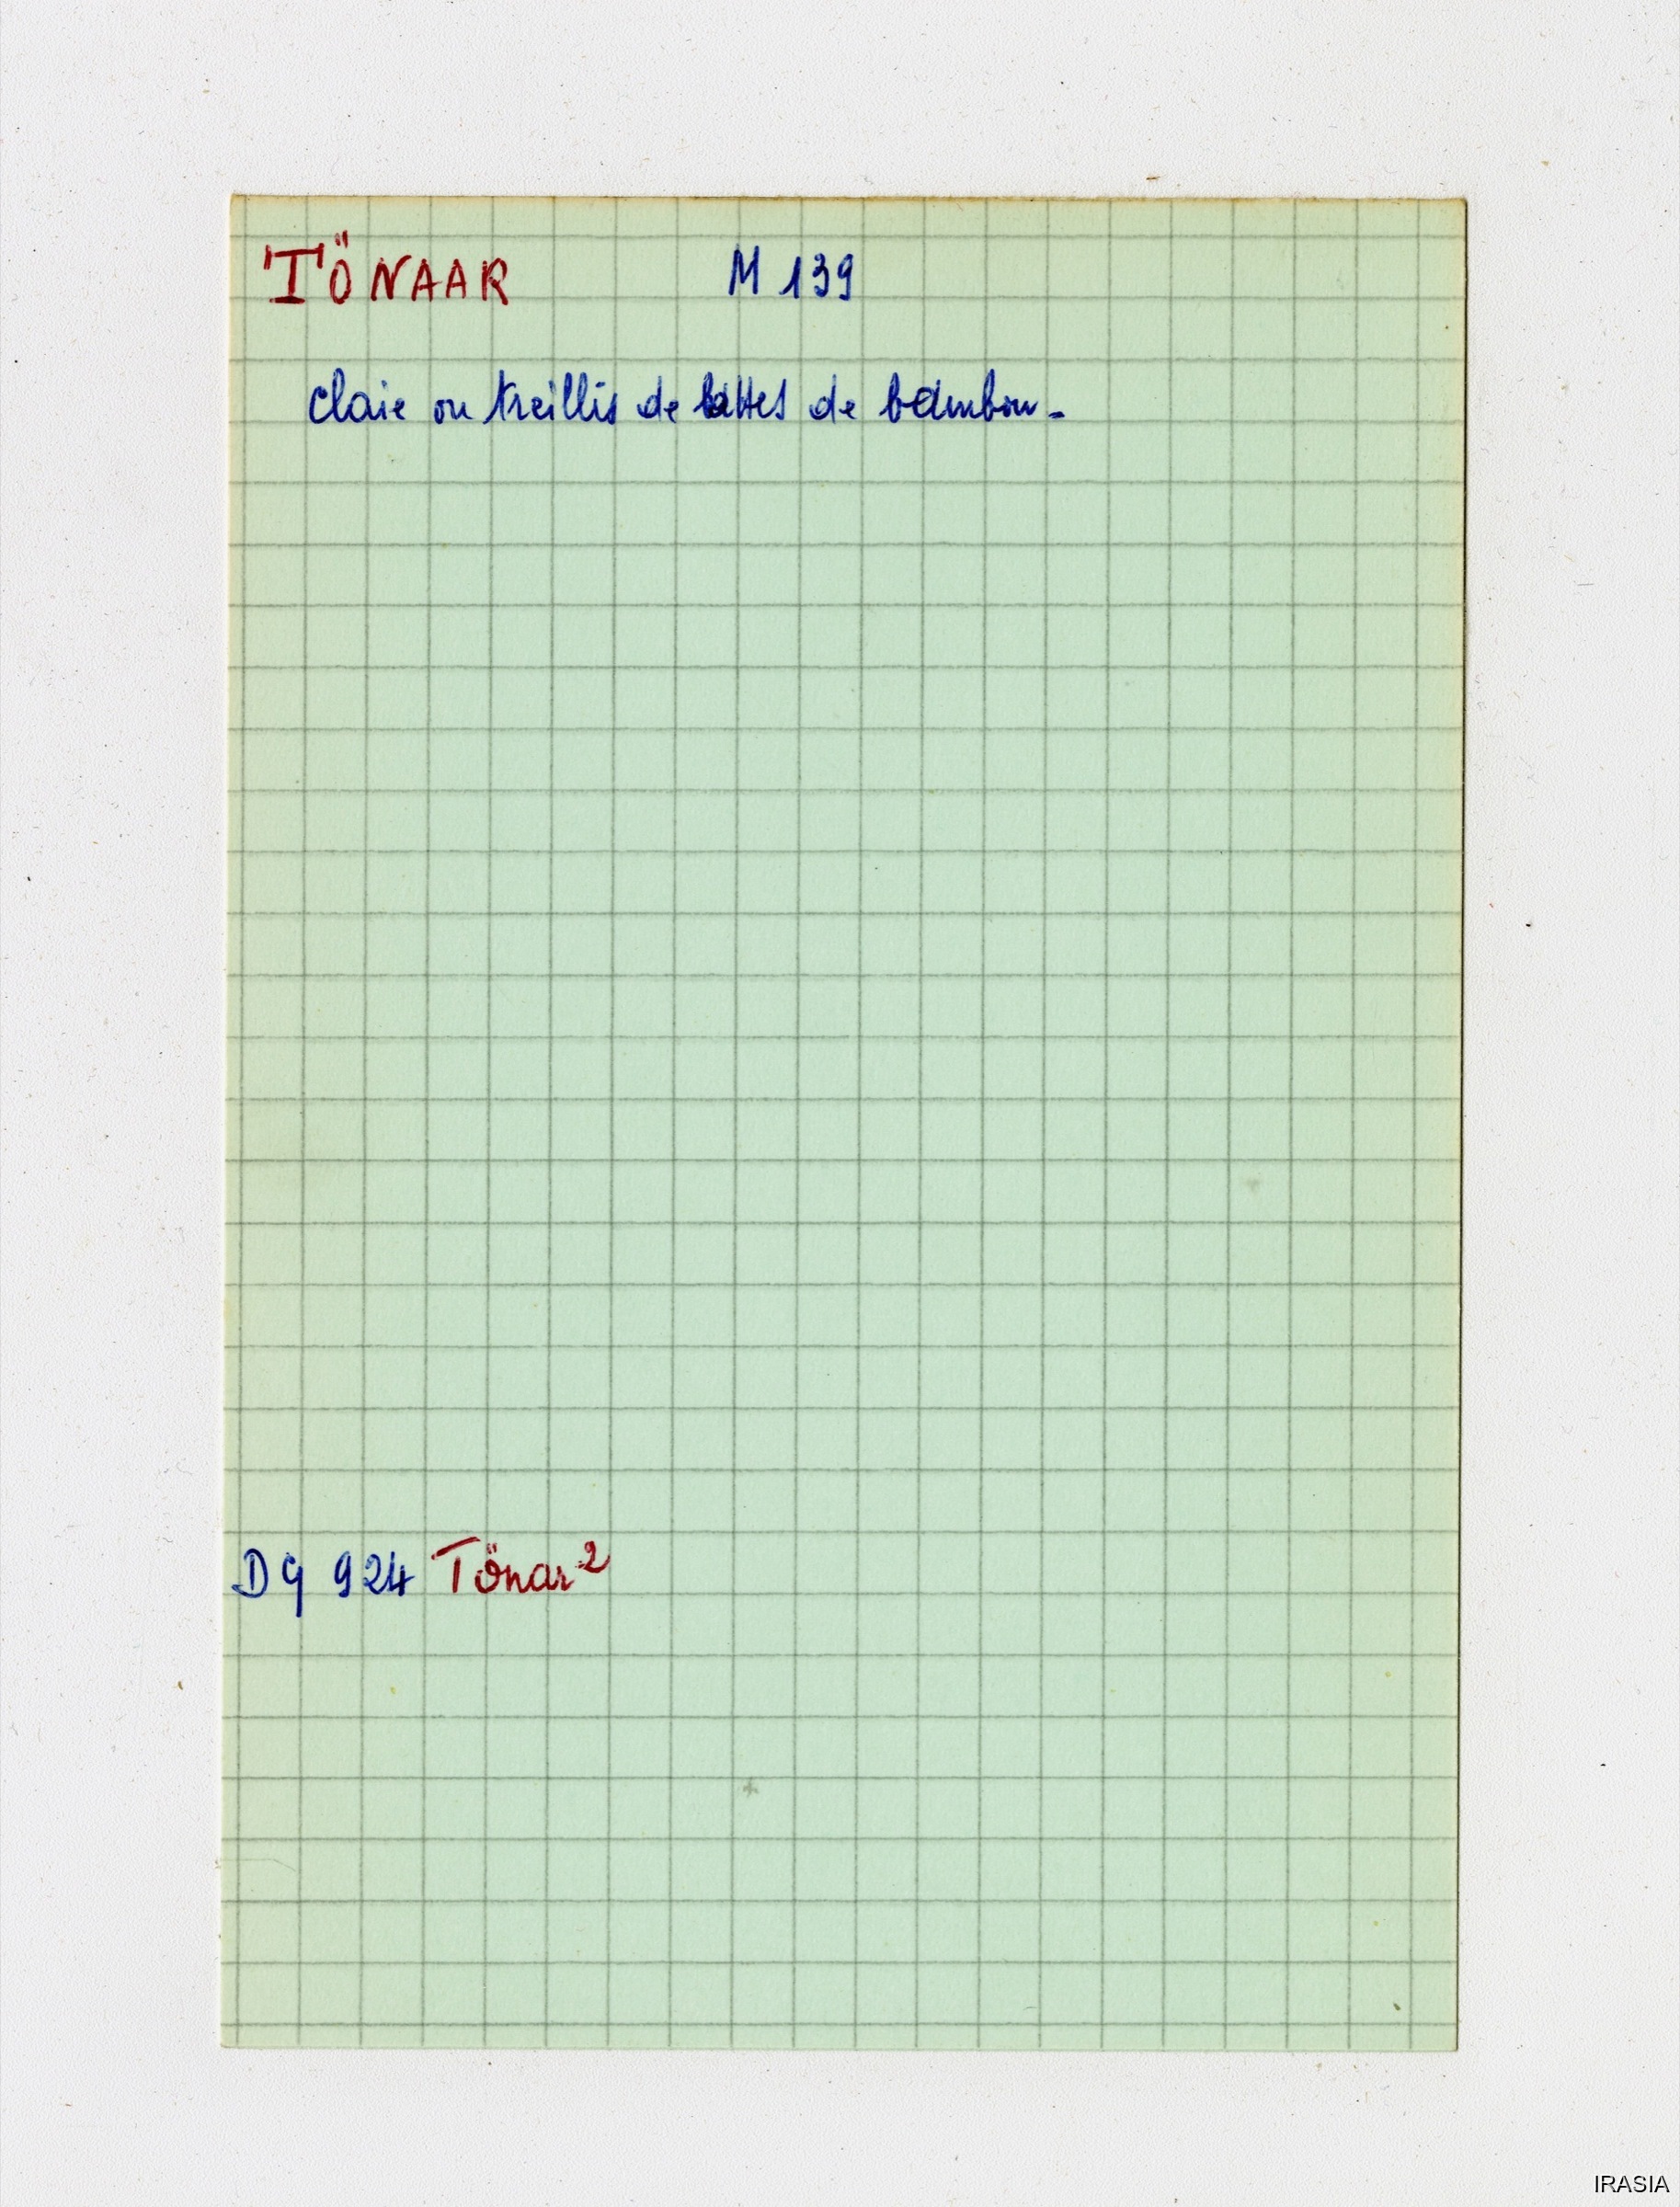 TÖNAAR M 139
claie ou treillis de lattes de bambou-
DG 924 Tönar²
IRASIA